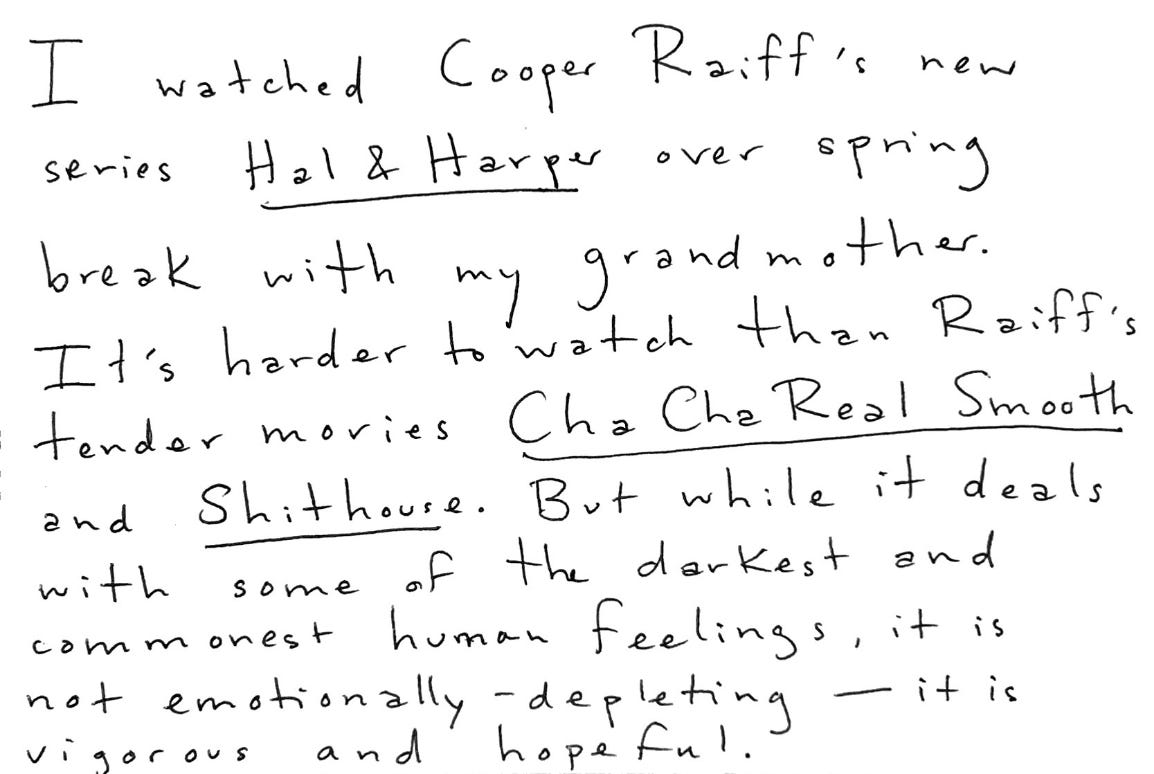 I watched Cooper Raiff's new
series Hal & Harper over spring
break with my grandmother.
It's harder to watch than Raiff's
tender movies Cha Cha Real Smooth
and Shithouse. But while it deals
with some of the darkest and
commonest human feelings, it is
not emotionally-depleting — it is
vigorous and hopeful.